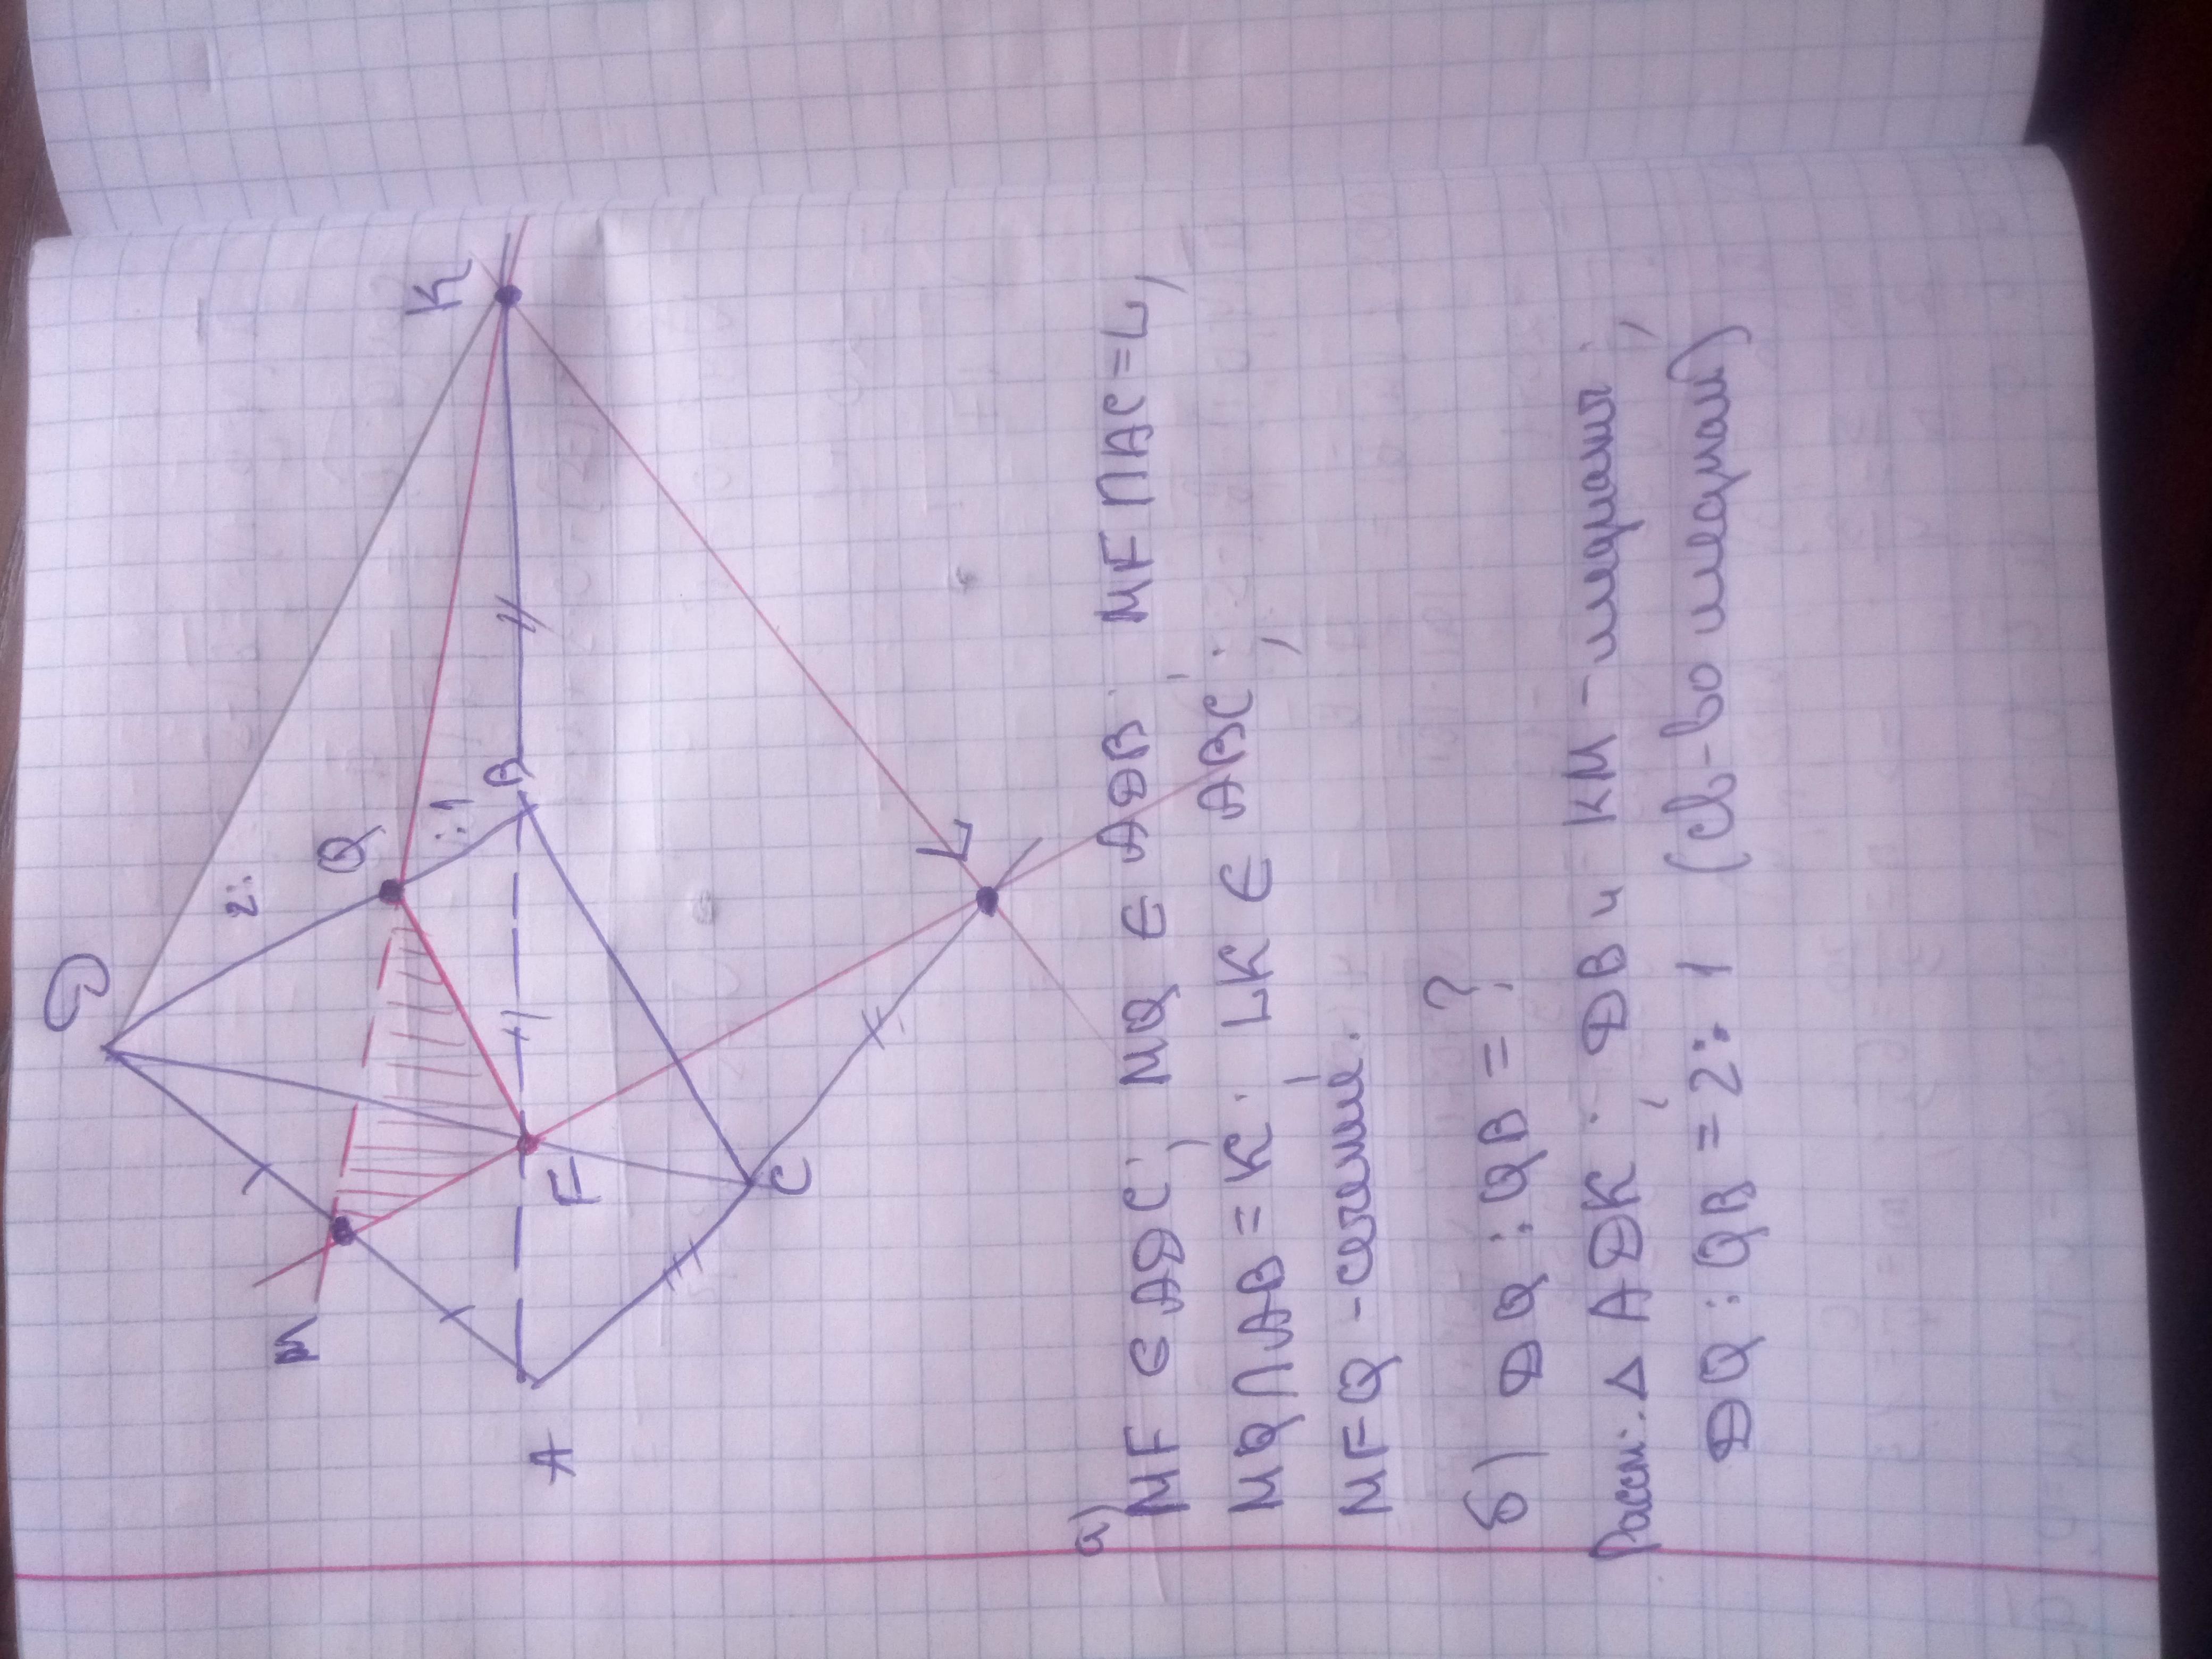 D
M
Q
2:
:1
B
K
A
F
C
L
а) MF ∈ ADC; MQ ∈ ADB; MF ∩ AC = L,
MQ ∩ AB = K; LK ∈ ABC;
MFQ - сечение.
б) DQ : QB = ?
Рассм. Δ ADK; DB и KM - медианы;
DQ : QB = 2 : 1 (св-во медиан)